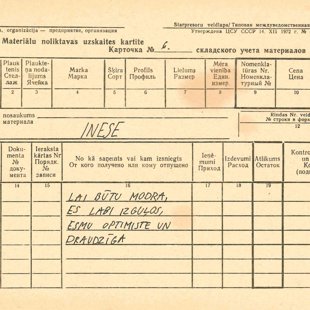 Starpresoru veidlapa/Типовая междуведомственная
организация — предприятие, организация
Утверждена ЦСУ СССР 14. XII 1972 г. №
Materiālu noliktavas uzskaites kartīte
Карточка № 6. складского учета материалов
Plauktenis Стеллаж
Plauktenα nodalījums Ячейка
Marka Марка
Šķira Сорт
Profils Профиль
Lielums Размер
Mēra vienība Един. измер.
Nomenklatūras Nr. Номенклатурный №
Cena Цена
1 2 3 4 5 6 7 8 9
nosaukums
материала
INESE
Rindas Nr. veid
№ строки в форм
12
Dokumenta № документа
Ieraksta kārtas Nr Порядк. № записи
No kā saņemts vai kam izsniegts От кого получено или кому отпущено
Ieņēmumi Приход
Izdevumi Расход
Atlikums Остаток
14 15 16 17 18 19
LAI BŪTU MODRA,
ES LABI IZGUĻOS,
ESMU OPTIMISTE UN
DRAUDZĪGA